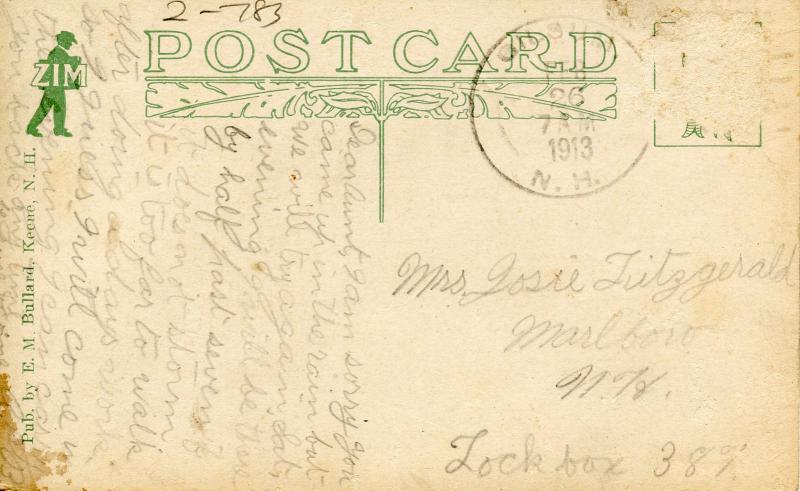 2-783
POST CARD
ZIM
FEB
26
7 AM
1913
N. H.
Pub. by E. M. Bullard, Keene, N. H.
Dear Aunt, I am sorry you
came up in the rain but
we will try again Sat;
evening. I will be there
by half past seven if
it does not storm
it is too far to walk
after doing a days work
so I guess I will come in
the evening
Mrs. Josie Fitzgerald
Marlboro
N.H.
Lock box 387